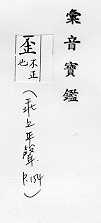 彙音寶鑑
歪
不正
也
(乖上平聲
P.154)